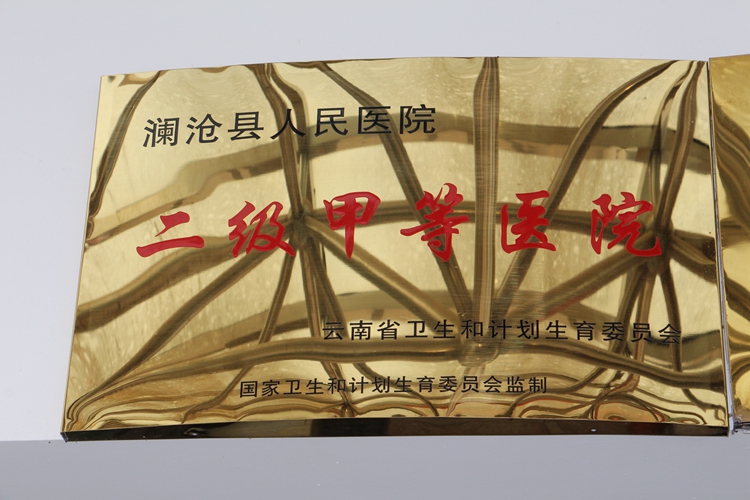 澜沧县人民医院
二级甲等医院
云南省卫生和计划生育委员会
国家卫生和计划生育委员会监制